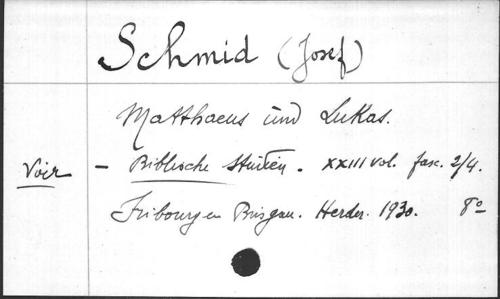 Schmid (Josef)
Matthaeus und Lukas.
Voir - Biblische Studien. XXIII vol. fasc. 2/4.
Fribourg en Brisgau. Herder. 1930. 8º